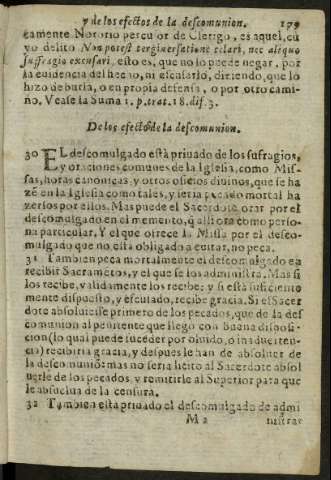 y de los efectos de la descomunion. 179
camente Notorio percusor de Clerigo, es aquel, cu
yo delito Non potest tergiuersatione celari, nec aliquo
suffragio excusari, esto es, que no lo puede negar, por
la euidencia del hecho, ni escusarlo, diziendo, que lo
hizo de burla, o en propia defensa, o por otro cami-
ño. Vease la Suma 1. p. trat. 18. dif. 3.
De los efectos de la descomunion.
30 EL descomulgado està priuado de los sufragios,
y oraciones comunes de la Iglesia, como Mis-
sas, horas canonicas, y otros oficios diuinos, que se ha
zẽ en la Iglesia como tales, y seria pecado mortal ha
zersos por ellos. Mas puede el Sacerdote orar por el
descomulgado en el memento, q̃ alli ora como perso-
na particular, Y el que ofrece la Missa por el desco-
mulgado que no està obligado a euitar, no peca.
31 Tambien peca mortalmente el descomulgado en
recibir Sacramẽtos, y el que se los administra. Mas si
los recibe, validamente los recibe; y si està suficiente
mente dispuesto, y escusado, recibe gracia. Si el Sacer
dote absoluiesse primero de los pecados, que de la des
comunion al penitente que llegò con buena disposi-
cion (lo qual puede suceder por oluido, o inaduerten-
cia) recibiria gracia, y despues le han de absoluer de
la descomuniõ: mas no seria licito al Sacerdote absol
uerle de los pecados, y remitirle al Superior para que
le absuelua de la censura.
32 Tambien està priuado el descomulgado de admi
M 2 nistrar